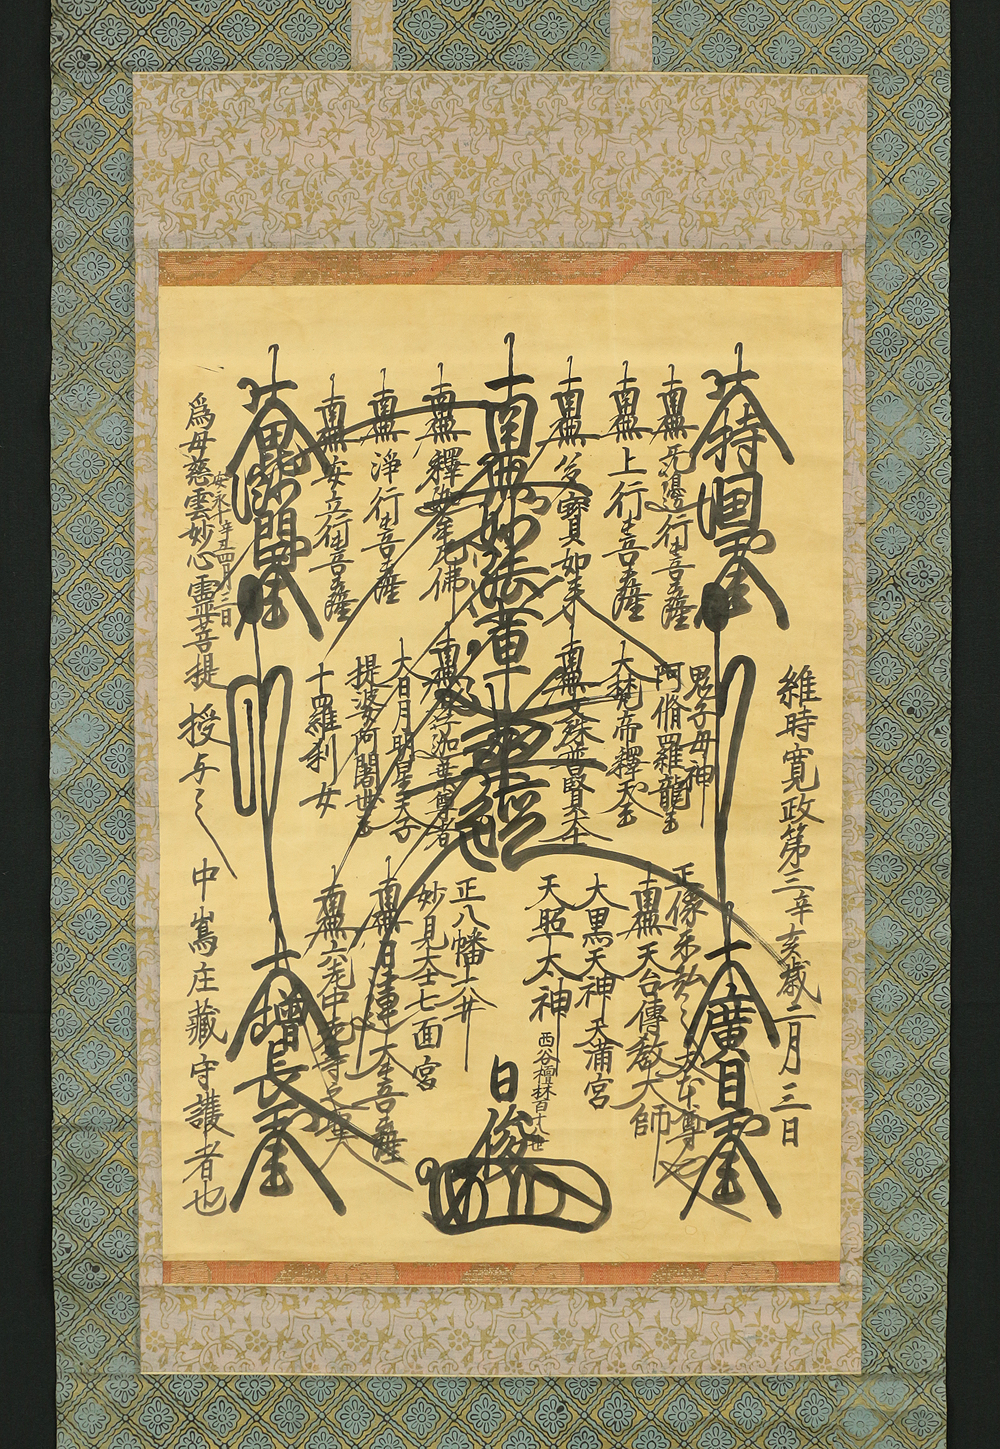 維時寛政第三辛亥歳二月三日
大持国天王
大廣目天王
南無無邊行菩薩
鬼子母神
阿脩羅龍王
正像未弘之大本尊也
南無上行菩薩
大梵帝釋天王
南無天台傳教大師
南無多寶如来
南無文殊普賢大士
大黒天神 天満宮
天照太神
南無妙法蓮華經
西谷檀林百十八世
日俊
南無釋迦牟尼佛
南無舎利弗迦葉尊者
正八幡大井
妙見大士七面宮
南無浄行菩薩
大日月明星天子
提婆多阿闍世王
南無日蓮大菩薩
南無安立行菩薩
十羅刹女
南無六老中老等之
大毘沙門天王
大増長天王
安永
為母慈雲妙心霊菩提 授与之 中嶌庄蔵守護者也